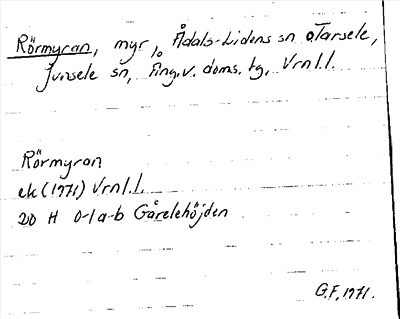 Rörmyran, myr, Ådals-Lidens sn o Tarsele,
Junsele sn, Ång.v. doms. tg, Vrnl.l.
Rörmyran
ek (1971) Vrnl.l.
20 H 0-1 a-b Gårelehöjden
G.F. 1971.